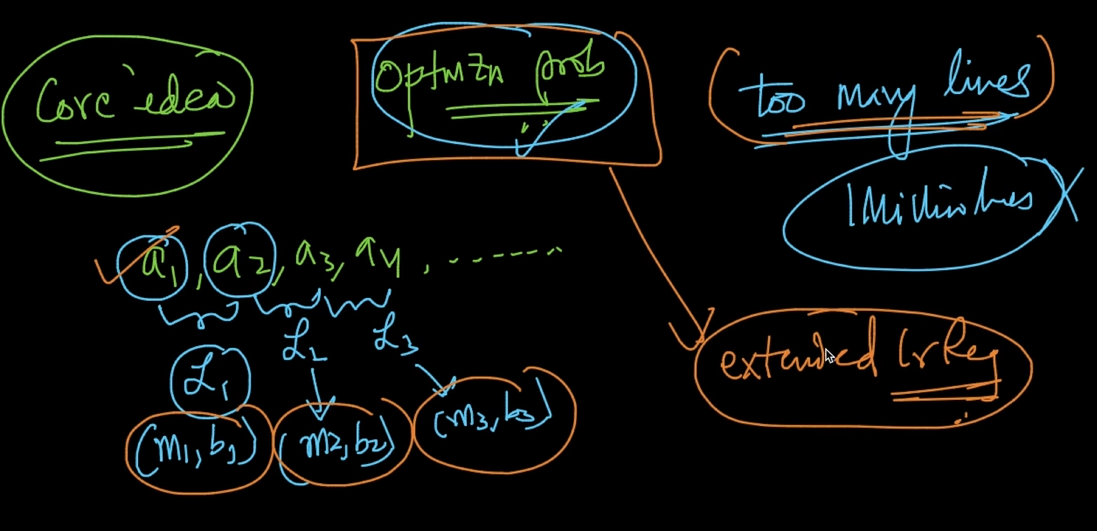 Core idea
Optmzn prob
too many lines
1 Million lines
a1, a2, a3, a4, .......
L1
L2
L3
(m1, b1)
(m2, b2)
(m3, b3)
extended lr Reg